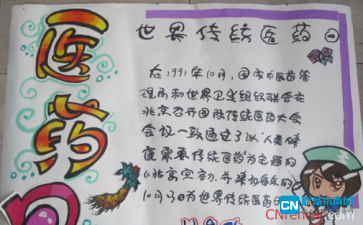 医药
世界传统医药日
在1991年10月，国家中医药管
理局和世界卫生组织联合在
北京召开国际传统医药大会
会议一致通过了以"人类健
康需要传统医药"为主题的
《北京宣言》，并
10月22日为世界传统医药日
CN